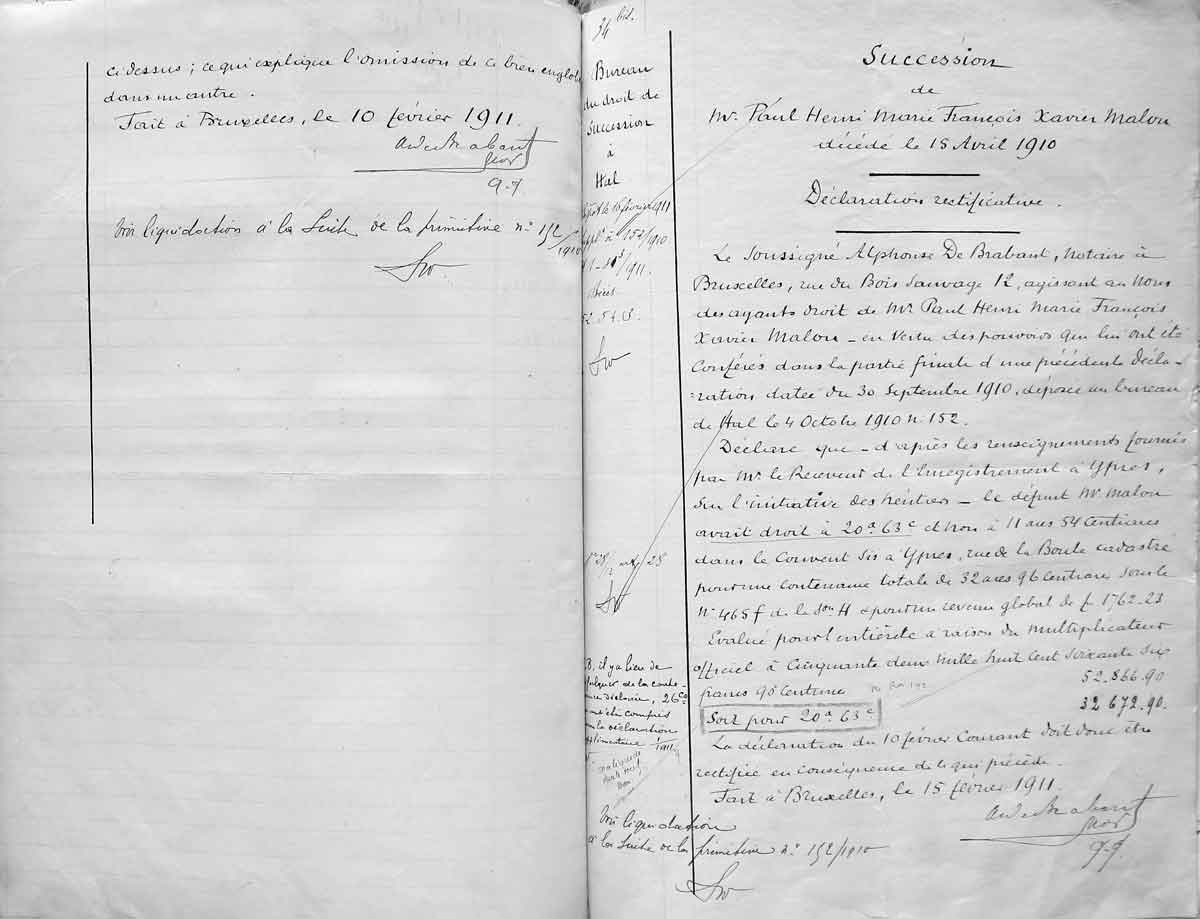 ci dessus ; ce qui explique l'omission de ce bien englobé
dans un autre.
Fait à Bruxelles, le 10 février 1911.
Voir liquidation à la suite de la primitive n° 152/1910
34 bis.
Bureau
du droit de
Succession
à
Hal
16 février 1911
à 152/1910
1911.
Succession
de
Mr. Paul Henri Marie François Xavier Malou
décédé le 15 Avril 1910
Déclaration rectificative.
Le soussigné Alphonse De Brabant, notaire à
Bruxelles, rue du Bois Sauvage 12, agissant au nom
des ayants droit de Mr Paul Henri Marie François
Xavier Malou - en vertu des pouvoirs que lui ont été
conférés dans la partie finale d'une précédente Décla-
=ration datée du 30 Septembre 1910, déposée au bureau
de Hal le 4 Octobre 1910 n. 152.
Déclare que - d'après les renseignements fournis
par Mr le Receveur de l'Enregistrement à Ypres,
sur l'initiative des héritiers - le défunt Mr Malou
avait droit à 20a 63c et non à 11 ares 54 centiares
dans le Couvent sis à Ypres, rue de la Boule cadastré
pour une contenance totale de 32 ares 96 centiares sous le
N° 465f de la son H & pour un revenu global de f 1762.23
Evalué pour l'entièreté à raison du multiplicateur
officiel à Cinquante deux mille huit cent soixante six
francs 90 centimes 52.866.90
Soit pour 20a 63c 32 672.90.
La déclaration du 10 février courant doit donc être
rectifiée en conséquence de ce qui précède.
Fait à Bruxelles, le 15 février 1911.
il y a lieu de
de la conte-
26 ca
compris
la déclaration
1/1911
Voir liquidation
à la suite de la primitive n° 152/1910